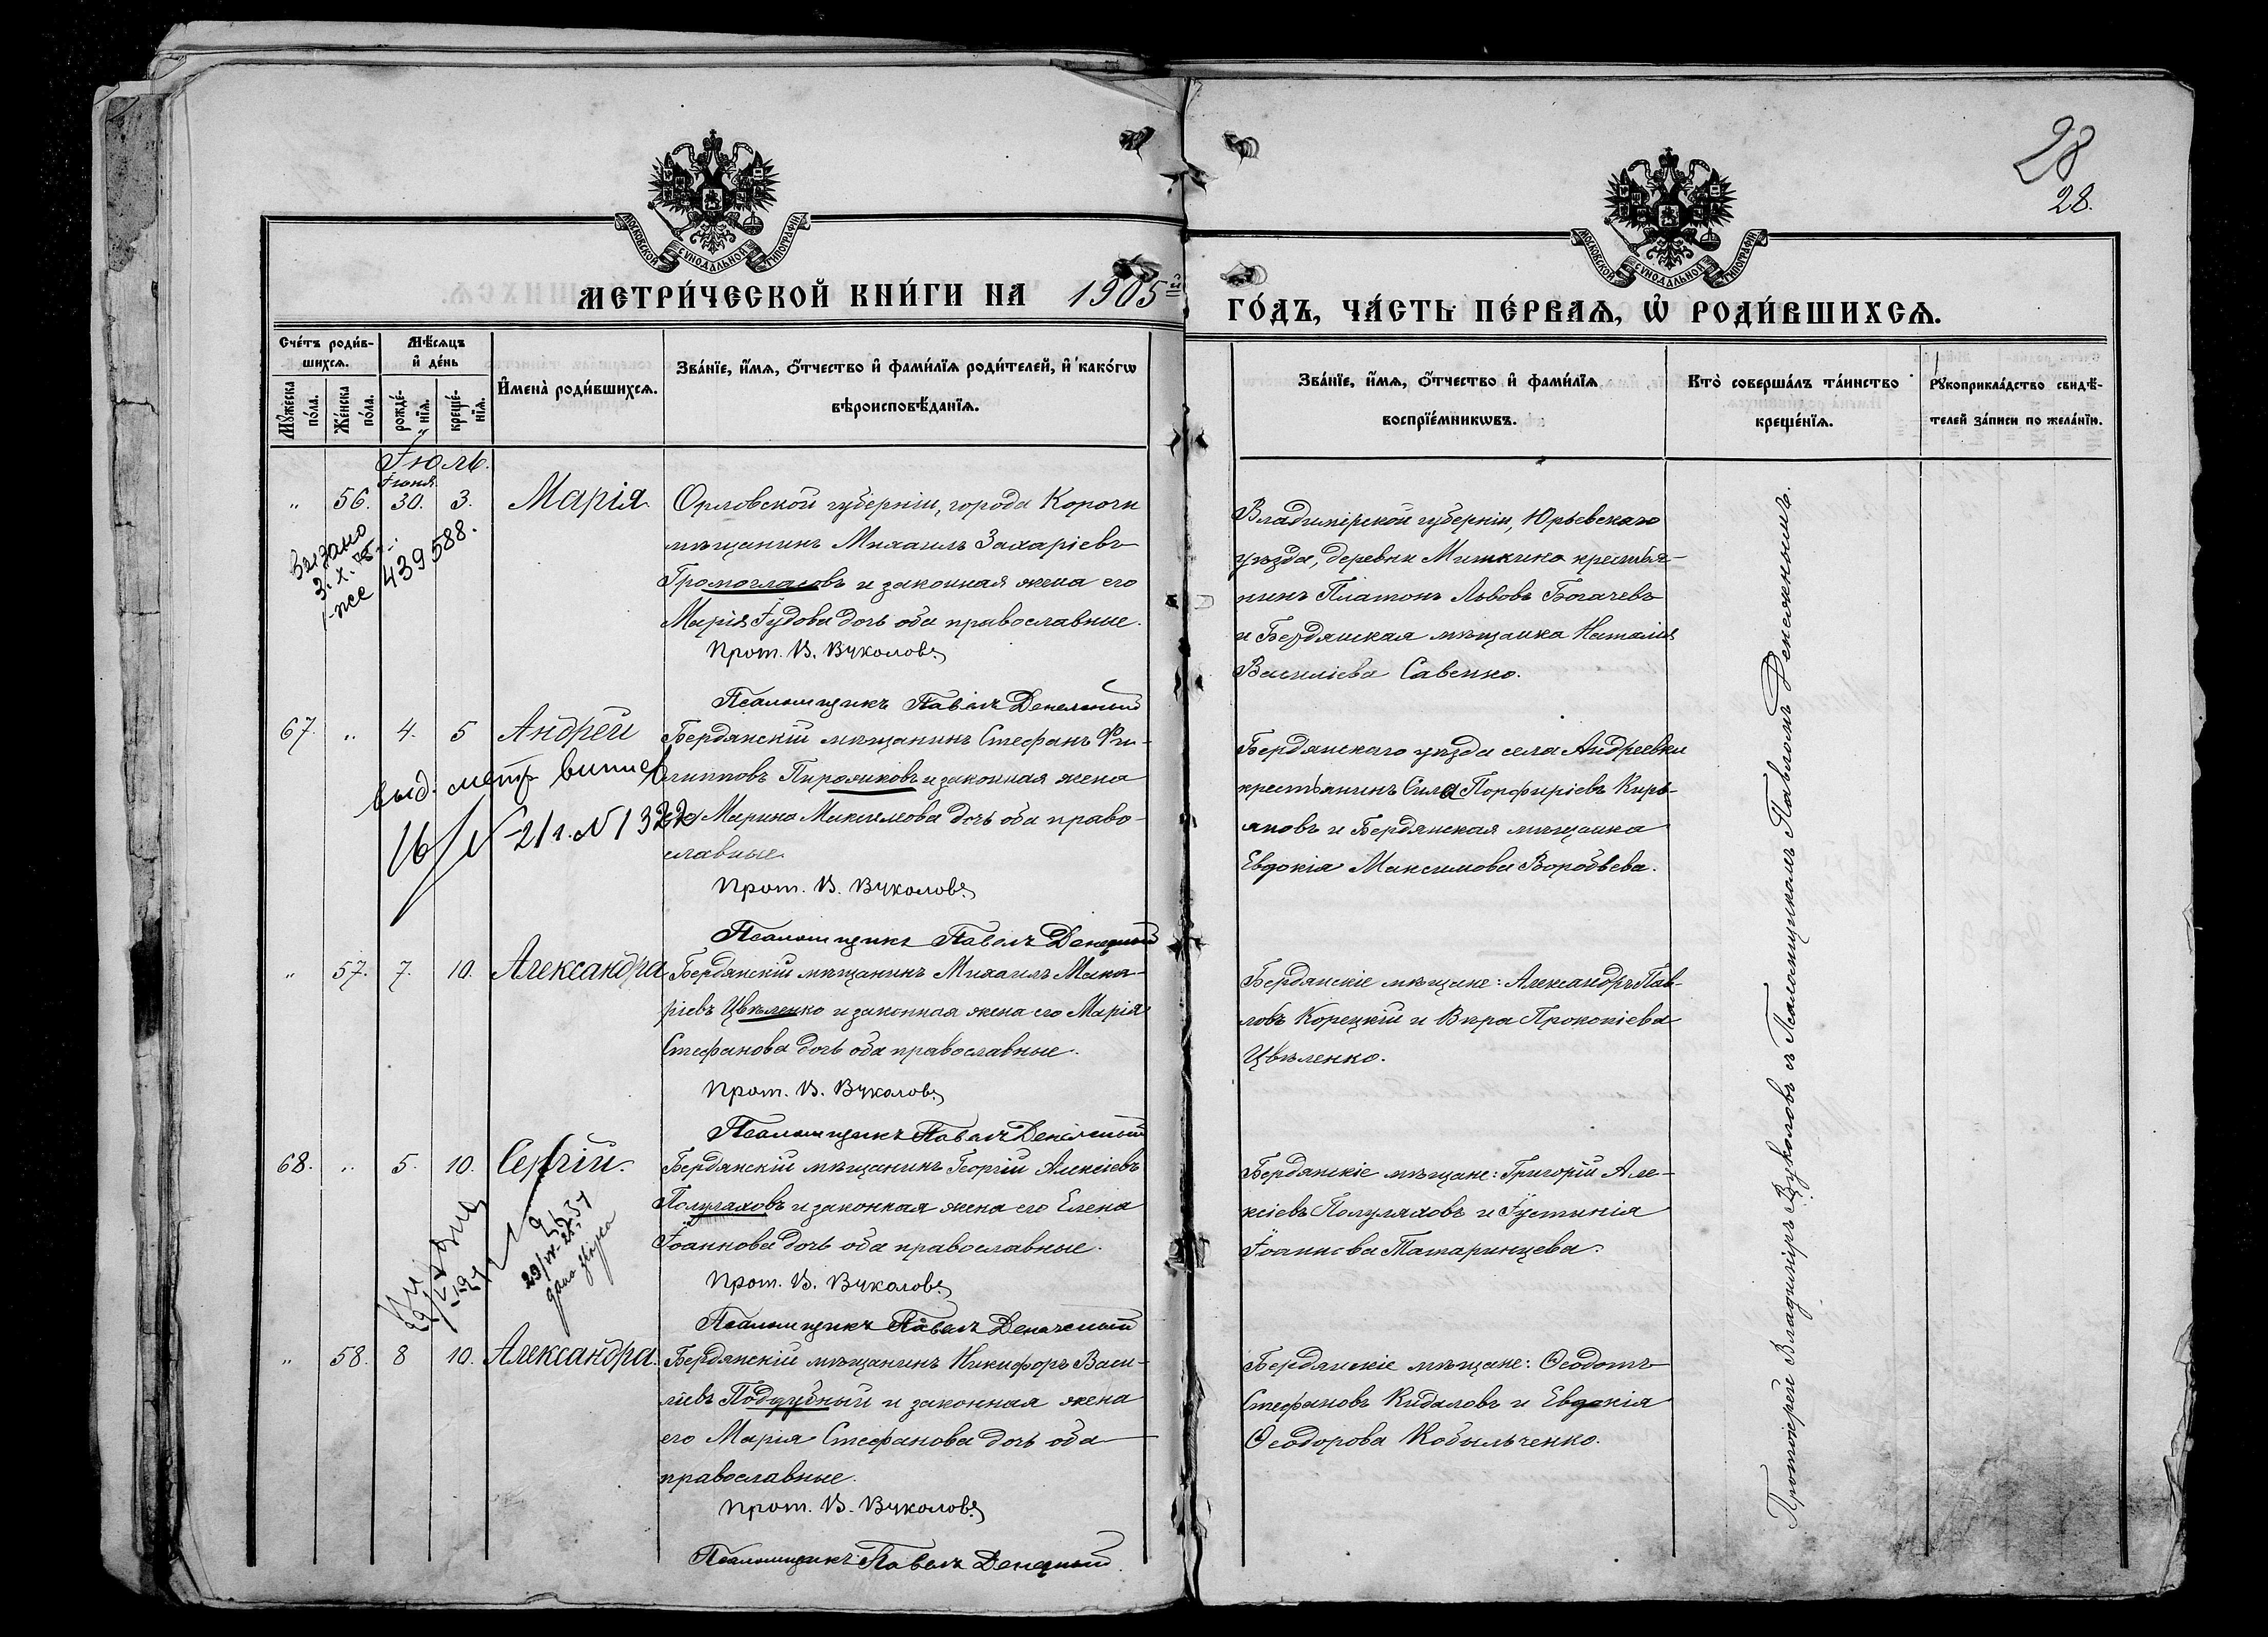 28
28.
МОСКОВСКОЙ СѴНОДАЛЬНОЙ ТИПОГРАФІИ
МОСКОВСКОЙ СѴНОДАЛЬНОЙ ТИПОГРАФІИ
МЕТРИ́ЧЕСКОЙ КНИ́ГИ НА 1905й
ГО́ДЪ, ЧА́СТЬ ПЕ́РВАѦ, Ѡ҆ РОДИ́ВШИХСѦ.
Сче́тъ роди́в-
шихсѧ.
Мꙋ́жеска по́ла.
Же́нска по́ла.
Мѣ́сѧцъ
и҆ де́нь
рожде́-
нїѧ.
креще́-
нїѧ.
И҆мена̀ роди́вшихсѧ.
Зва́нїе, и҆́мѧ, ѻ҆́тчество и҆ фами́лїѧ роди́телей, и҆ како́гѡ
вѣроисповѣ́данїѧ.
Зва́нїе, и҆́мѧ, ѻ҆́тчество и҆ фами́лїѧ
воспрїе́мникѡвъ.
Кто̀ соверша́лъ та́инство
креще́нїѧ.
Рꙋкоприкла́дство свидѣ́-
телей за́писи по жела́нїю.
Іюль.
Іюня
" 56. 30. 3. Марія
Орловской губерніи, города Корочи
мѣщанинъ Михаилъ Захаріевъ
Громогласовъ и законная жена его
Марія Іудова дочь оба православные.
Прот. В. Вуколовъ
Псаломщикъ Павелъ Денежный
Владимірской губерніи, Юрьевскаго
уѣзда, деревни Мишкино крестья-
нинъ Платонъ Львовъ Богачевъ
и Бердянская мѣщанка Наталія
Василіева Савенко.
выдано
439588.
67. " 4. 5 Андрей
Бердянскій мѣщанинъ Стефанъ Фи-
липповъ Пирожковъ и законная жена
его Марина Максимова дочь оба право-
славные.
Прот. В. Вуколовъ
Псаломщикъ Павелъ Денежный
Бердянскаго уѣзда села Андреевки
крестьянинъ Сила Порфиріевъ Кирь-
яновъ и Бердянская мѣщанка
Евдокія Максимова Воробьева.
выд. метр
21г. N 1322
" 57. 7. 10. Александра
Бердянскій мѣщанинъ Михаилъ Мака-
ріевъ Цвѣленко и законная жена его Марія
Стефанова дочь оба православные.
Прот. В. Вуколовъ
Псаломщикъ Павелъ Денежный
Бердянскіе мѣщане: Александръ Пав-
ловъ Корецкій и Вѣра Прокопіева
Цвѣленко.
68. " 5. 10. Сергій.
Бердянскій мѣщанинъ Георгій Алексіевъ
Полуляховъ и законная жена его Елена
Іоаннова дочь оба православные.
Прот. В. Вуколовъ
Псаломщикъ Павелъ Денежный
Бердянскіе мѣщане: Григорій Але-
ксіевъ Полуляховъ и Іустинія
Іоаннова Татаринцева.
" 58. 8 10. Александра.
Бердянскій мѣщанинъ Никифоръ Васи-
ліевъ Поддубный и законная жена
его Марія Стефанова дочь оба
православные.
Прот. В. Вуколовъ
Псаломщикъ Павелъ Денежный.
Бердянскіе мѣщане: Ѳеодотъ
Стефановъ Кидаловъ и Евдокія
Ѳеодорова Кобыльченко.
Протоіерей Владиміръ Вуколовъ съ Псаломщикомъ Павломъ Денежнымъ.